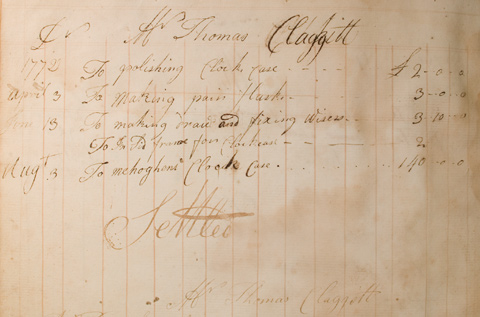 Dr Mr Thomas Claggitt
1772 To polishing Clock case £2-0-0
April 3 To Making pair 3-0-0
13 To making and fixing Wires 3-10-0
To frame for 2
Augt 3 To mehogheny Clock Case 140-0-0
Settled
Mr Thomas Claggitt